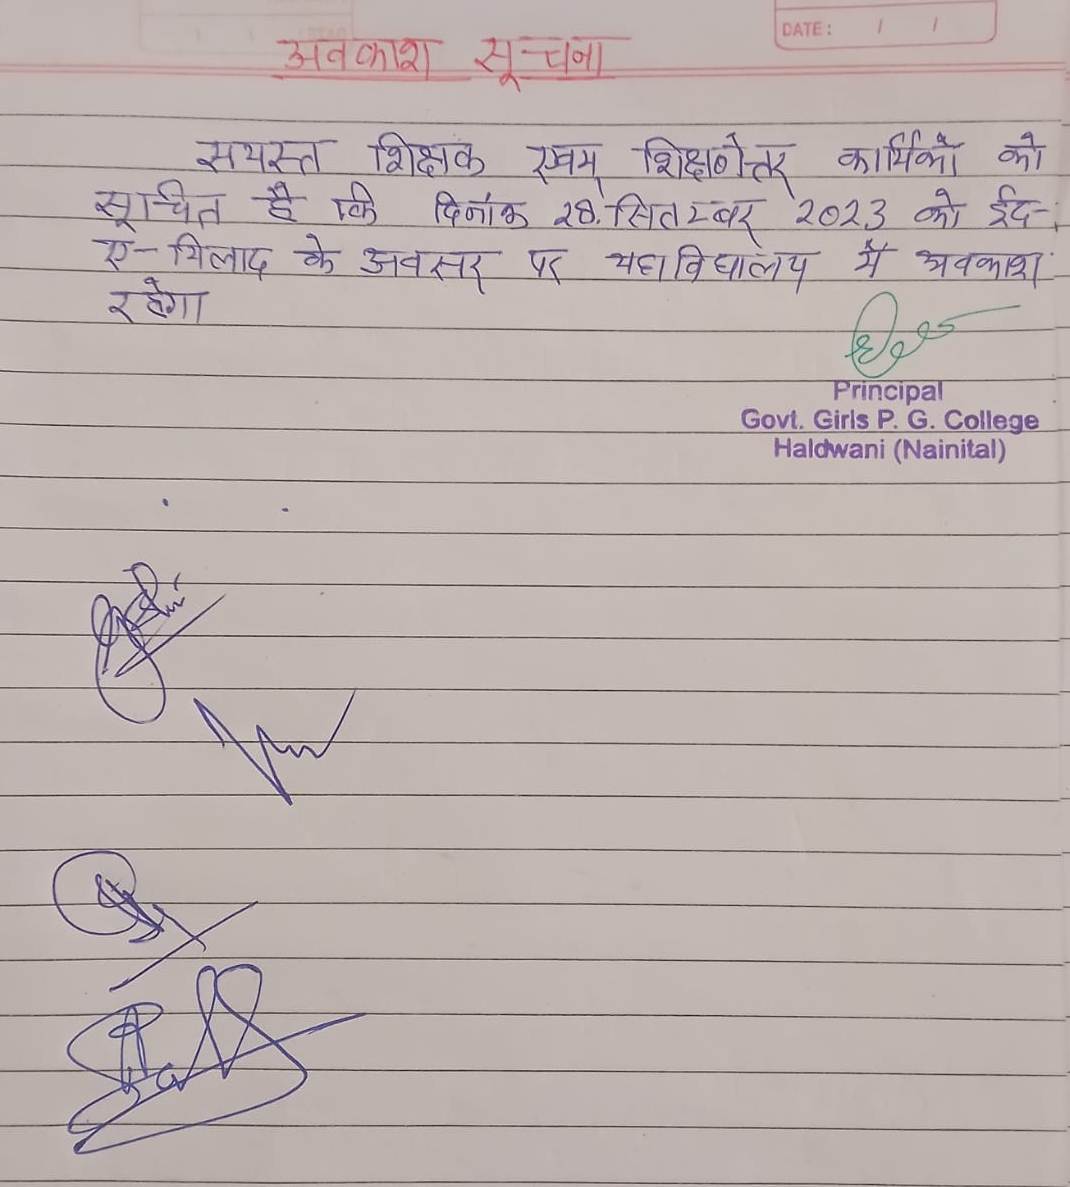 DATE: / /
अवकाश सूचना
समस्त शिक्षक एवम् शिक्षणेत्तर कार्मिकों को
सूचित है कि दिनांक 28. सितम्बर 2023 को ईद-
ए-मिलाद के अवसर पर महाविद्यालय में अवकाश
रहेगा
Principal
Govt. Girls P. G. College
Haldwani (Nainital)